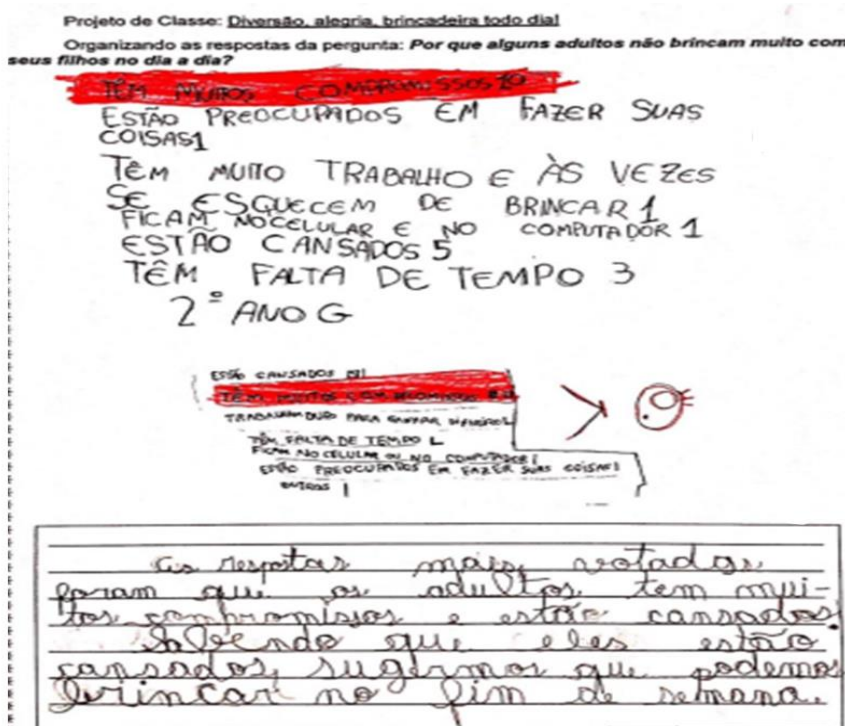 Projeto de Classe: Diversão, alegria, brincadeira todo dia!
Organizando as respostas da pergunta: Por que alguns adultos não brincam muito com
seus filhos no dia a dia?
TÊM MUITOS COMPROMISSOS 10
ESTÃO PREOCUPADOS EM FAZER SUAS
COISAS 1
TÊM MUITO TRABALHO E ÀS VEZES
SE ESQUECEM DE BRINCAR 1
FICAM NO CELULAR E NO COMPUTADOR 1
ESTÃO CANSADOS 5
TÊM FALTA DE TEMPO 3
2º ANO G
ESTÃO CANSADOS
TÊM MUITOS COMPROMISSOS
TRABALHAM DURO PARA GANHAR DINHEIRO
TÊM FALTA DE TEMPO
FICAM NO CELULAR OU NO COMPUTADOR
ESTÃO PREOCUPADOS EM FAZER SUAS COISAS
OUTROS
As respostas mais votadas
foram que os adultos tem mui-
tos compromissos e estão cansados.
Sabendo que eles estão
cansados, sugerimos que podemos
brincar no fim de semana.